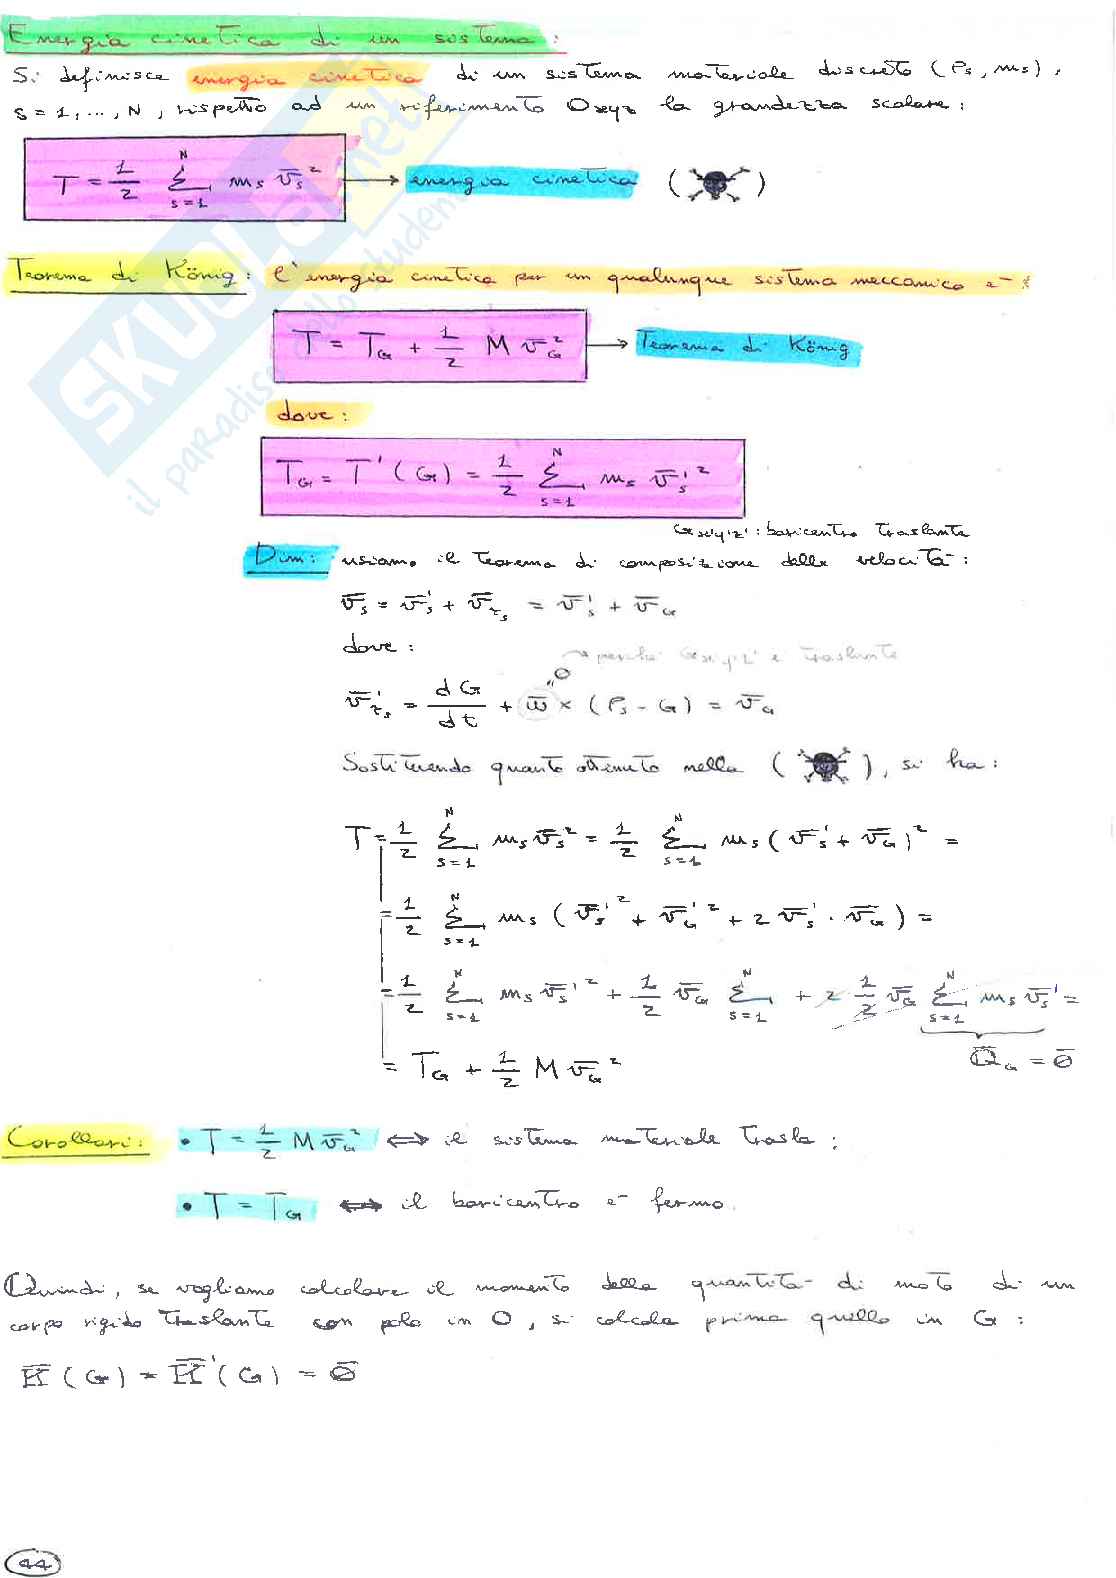 Energia cinetica di un sistema:
Si definisce energia cinetica di un sistema materiale discreto (Ps, ms),
s = 1, ..., N, rispetto ad un riferimento Oxyz la grandezza scalare:
T = 1/2 Σ_{s=1}^{N} m_s v̄_s² → energia cinetica (☠)
Teorema di König: l'energia cinetica per un qualunque sistema meccanico è:
T = T_G + 1/2 M v̄_G² → Teorema di König
dove:
T_G = T'(G) = 1/2 Σ_{s=1}^{N} m_s v̄_s'²
Gx'y'z': baricentro traslante
Dim: usiamo il teorema di composizione delle velocità:
v̄_s = v̄_s' + v̄_τs = v̄_s' + v̄_G
dove:
→ perché Gx'y'z' è traslante
v̄_τs' = dG/dt + ω̄ × (Ps - G) = v̄_G
0
Sostituendo quanto ottenuto nella (☠), si ha:
T = 1/2 Σ_{s=1}^{N} m_s v̄_s² = 1/2 Σ_{s=1}^{N} m_s (v̄_s' + v̄_G)² =
= 1/2 Σ_{s=1}^{N} m_s (v̄_s'² + v̄_G'² + 2 v̄_s' · v̄_G) =
= 1/2 Σ_{s=1}^{N} m_s v̄_s'² + 1/2 v̄_G Σ_{s=1}^{N} + 2 1/2 v̄_G Σ_{s=1}^{N} m_s v̄_s' =
Q̄_G = 0̄
= T_G + 1/2 M v̄_G²
Corollari: • T = 1/2 M v̄_G² ⟺ il sistema materiale trasla;
• T = T_G ⟺ il baricentro è fermo.
Quindi, se vogliamo calcolare il momento della quantità di moto di un
corpo rigido traslante con polo in O, si calcola prima quello in G:
K̄(G) = K̄'(G) = 0̄
44
SKUOLA.net
il paradiso dello studente